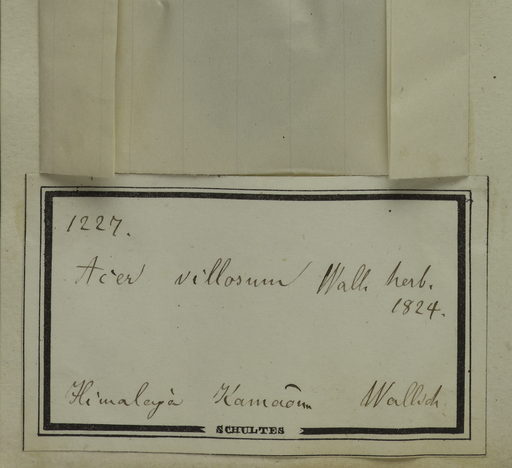 1227.
Acer villosum Wall. herb.
1824.
Himalaya Kamaon Wallich
SCHULTES